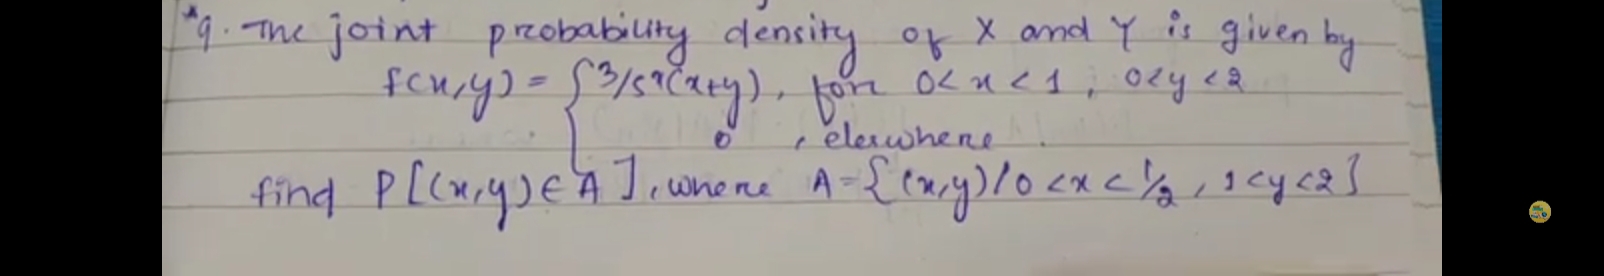 *9. The joint probability density of X and Y is given by
f(x,y) = { 3/5 x(x+y), for 0< x < 1 ; 0<y <2
0 , elsewhere .
find P[(x,y) ∈ A ], where A = { (x,y) / 0 <x < 1/2 , 1<y<2}